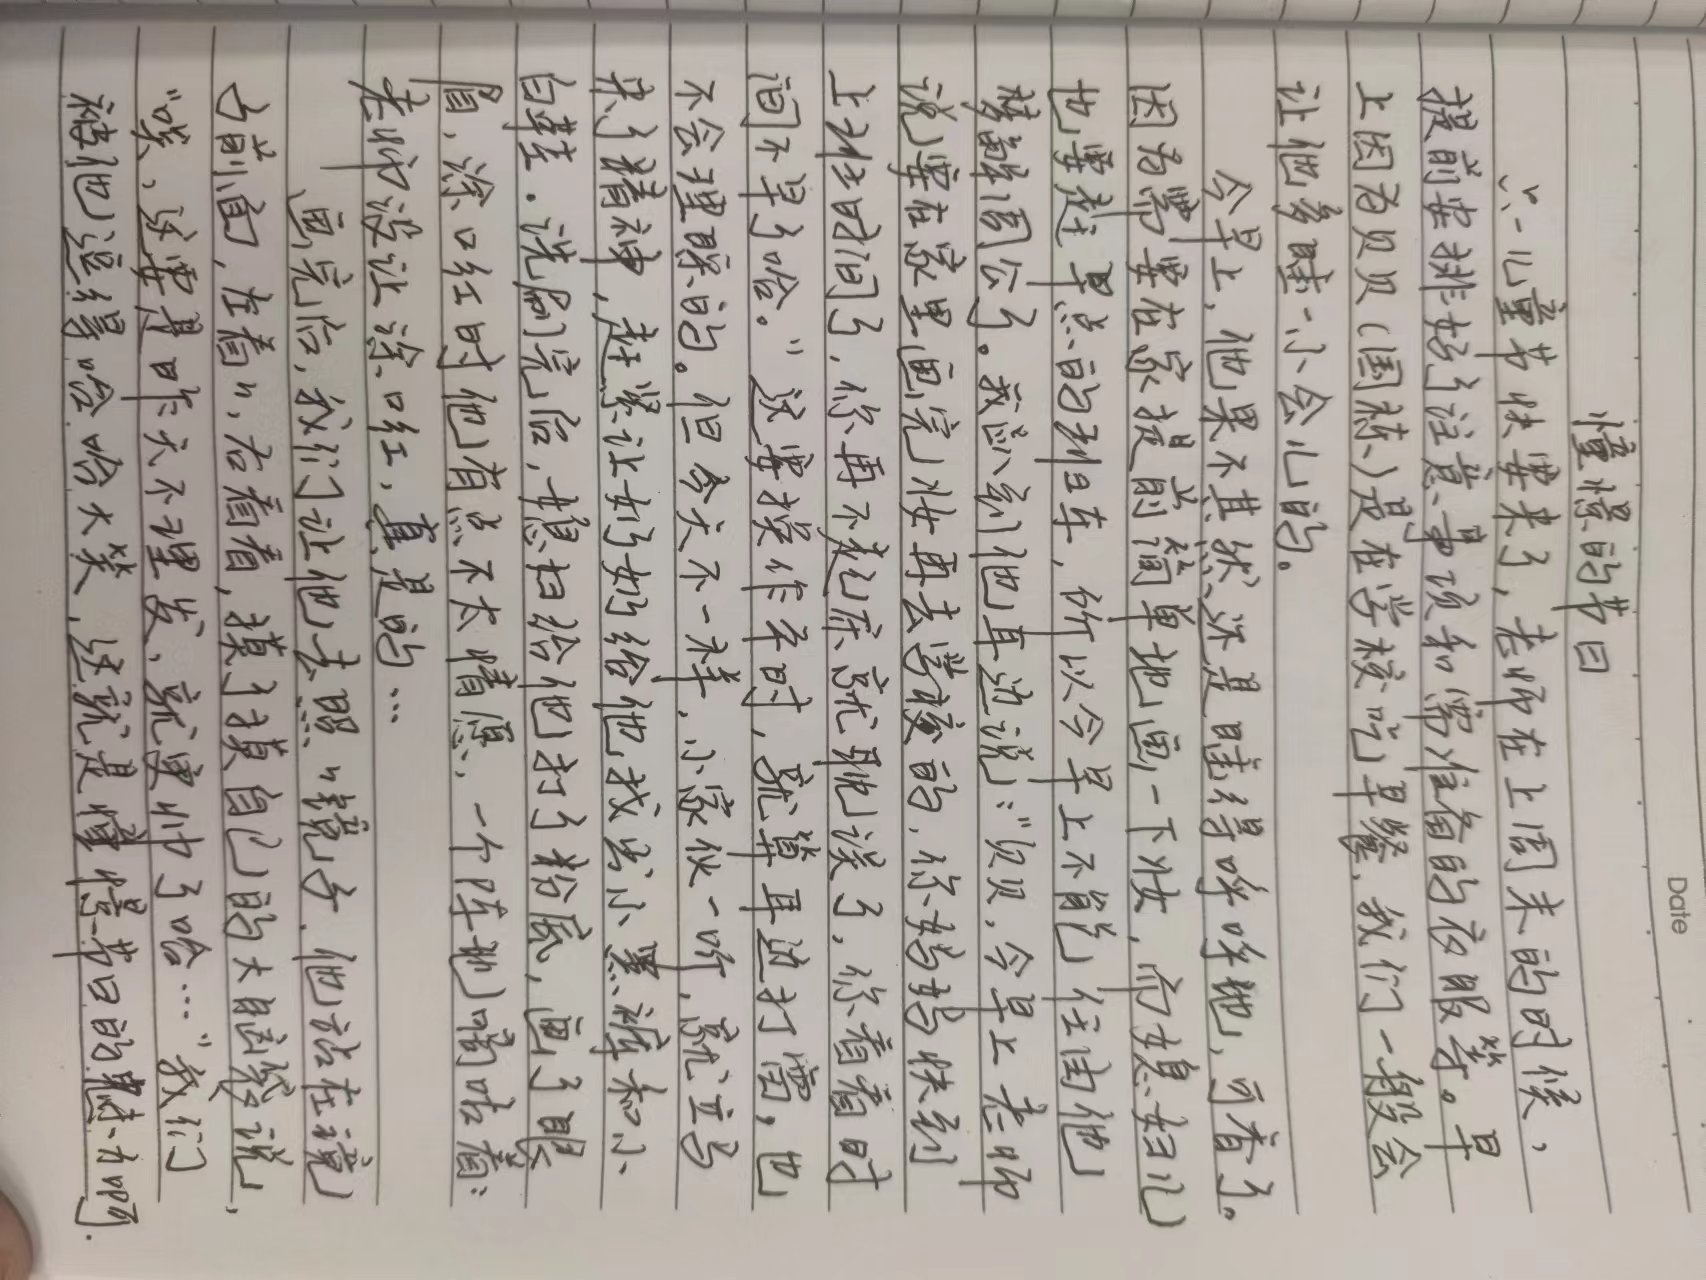 Date
憧憬的节日
六·一儿童节快要来了，老师在上周末的时候，
提前安排好了注意事项和需准备的衣服等。早
上因为贝贝(国栋)是在学校吃早餐，我们一般会
让他多睡一小会儿的。
今早上，他果不其然还是睡得呼呼地，可香了。
因为需要在家提前简单地画一下妆，而媳妇儿
也要赶早点的班车，所以今早上不能任由他
搂着周公了。我趴到他耳边说："贝贝，今早上老师
说要在家里画完妆再去学校的，你妈妈快到
上班时间了，你再不起床就耽误了，你看看时
间不早了哈。"这要换作平时，就算耳边打雷，也
不会理睬的。但今天不一样，小家伙一听，就立马
来了精神，赶紧让奶奶给他找出小黑裤和小
白鞋。洗刷完后，媳妇给他打了粉底，画了眼
眉，涂口红时他有点不太情愿，一个阵地嘀咕着：
老师没让涂口红，真是的…
画完后，我们让他去照"镜子，他站在镜
子前面，左看"，右看看，摸了摸自己的大脑袋说，
"唉，这要是昨天不理发，就更帅了哈…"我们
被他逗得哈哈大笑，这就是憧憬节日的魅力啊。